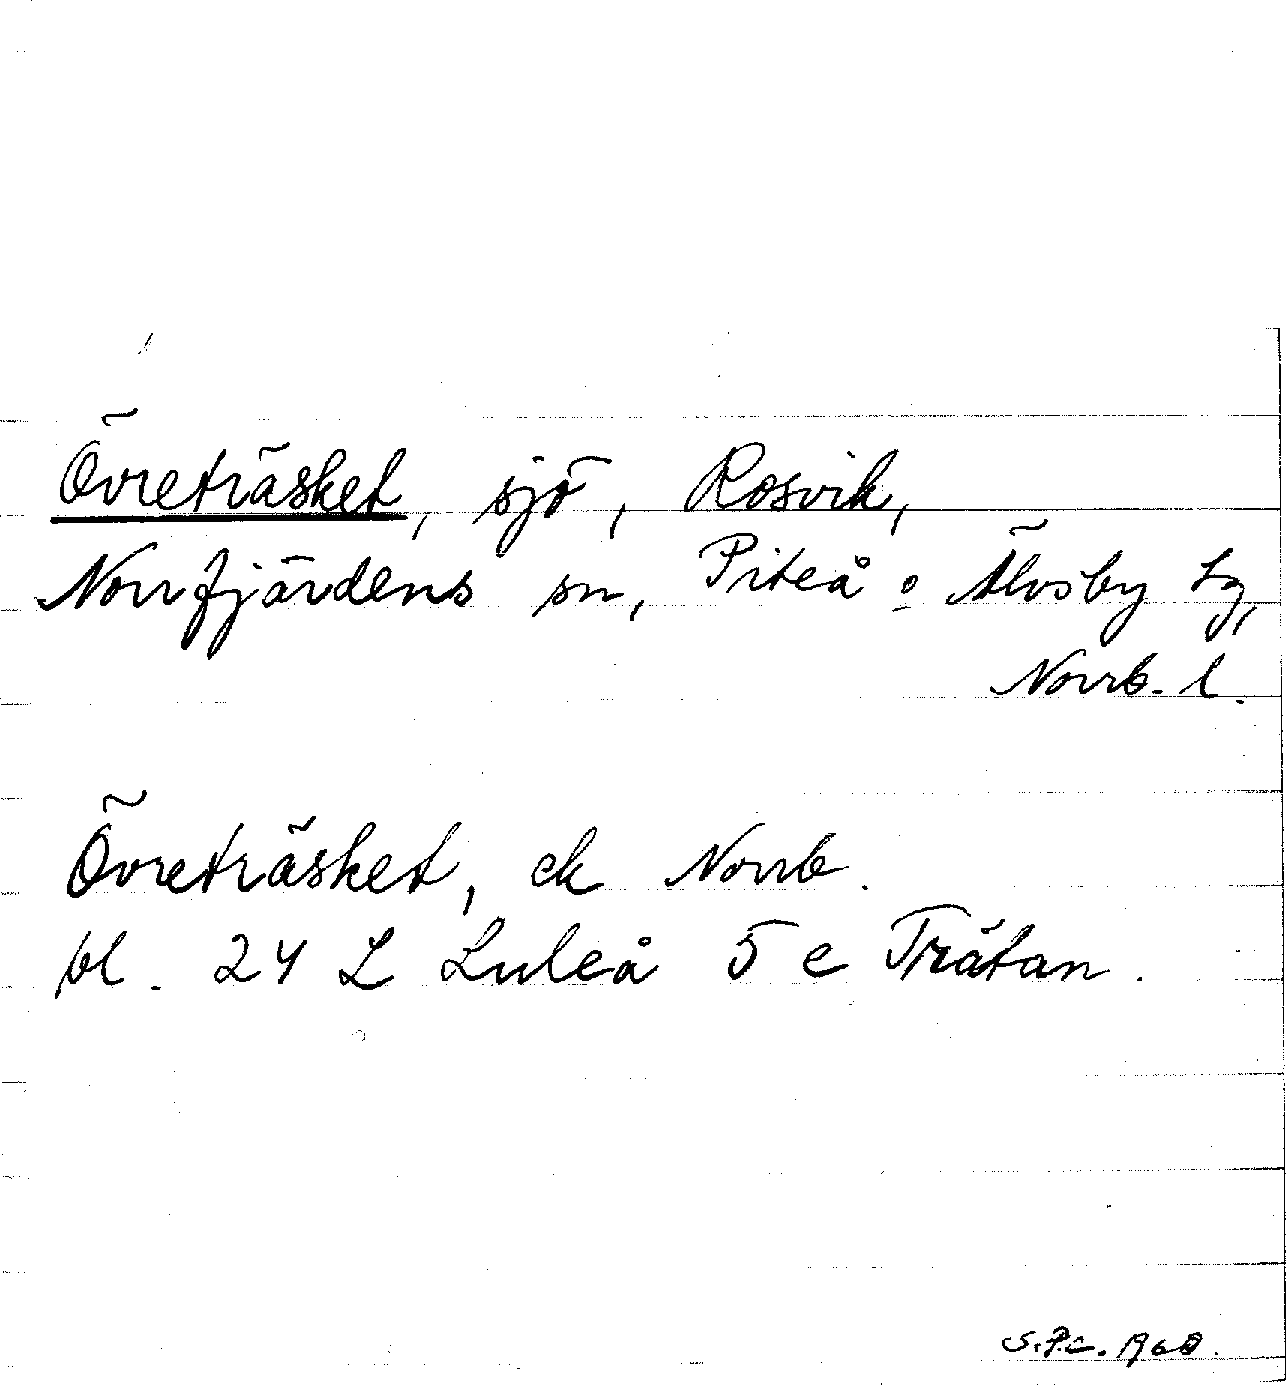 Övreträsket, sjö, Rosvik,
Norrfjärdens sn, Piteå o Älvsby tg,
Norrb. l.
Övreträsket, ek Norrb.
bl. 24 L Luleå 5 c Trätan.
S.P.C. 1968.